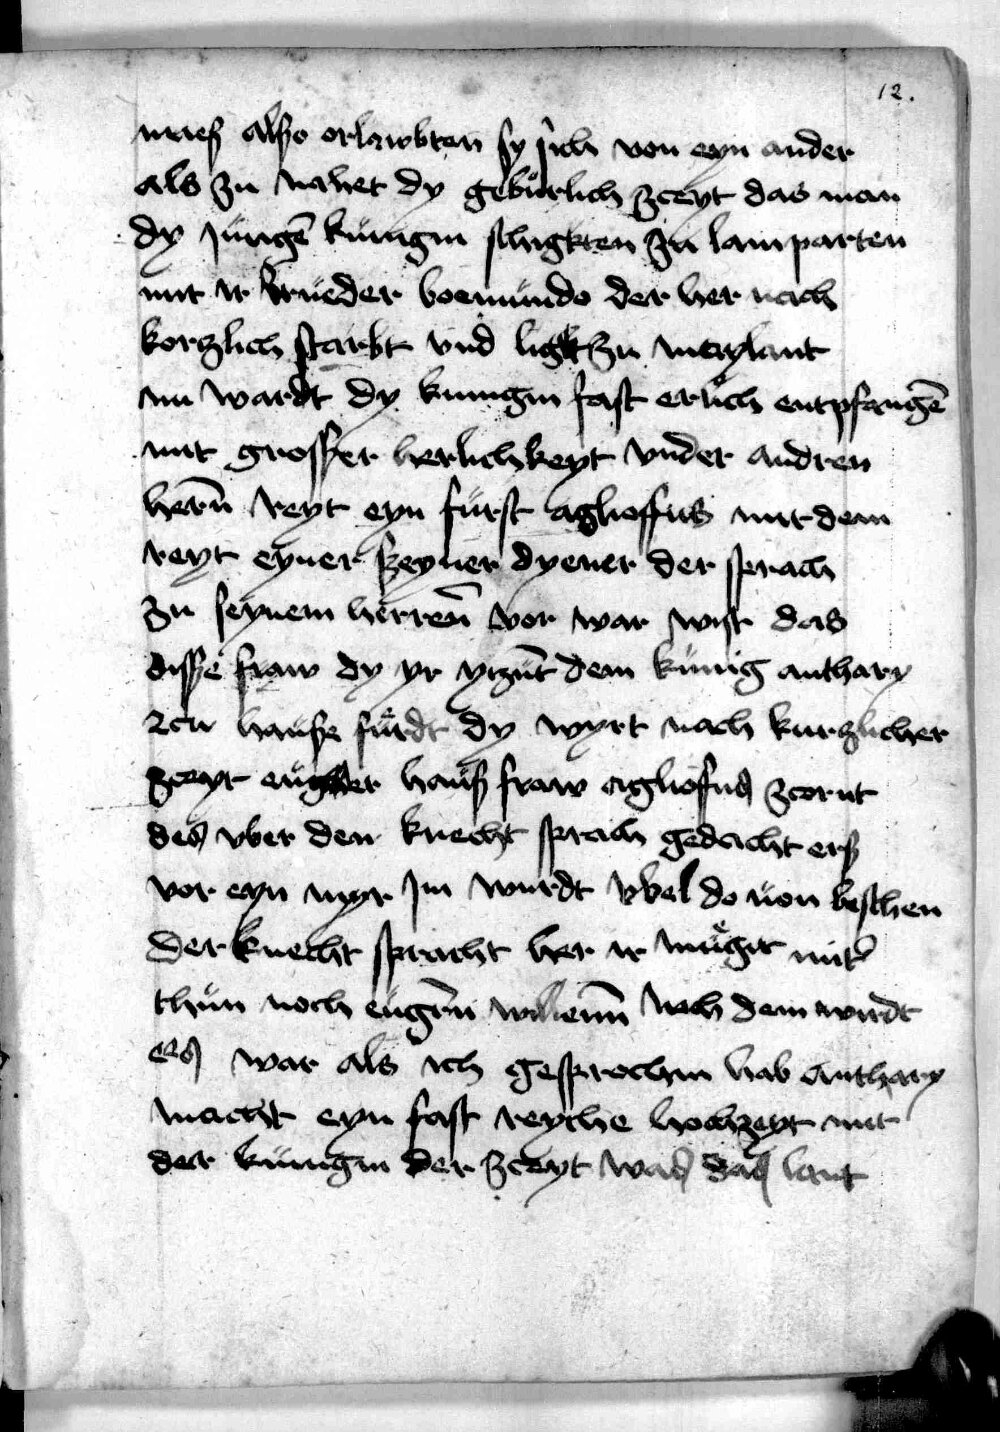 12.
mues also erlawbten sy sich von eyn ander
als zu nahet dy gebürlich zceyt das man
dy Jüngē künigin schigkten zu lamparten
mit ir brüeder boemundo der her nach
korzlich starbt vnd ligkt zu maylant
nu wardt dy kunigin fast erlich entpfangē
mit grosser herlichkeyt vnder andren
hern̄ reyt eyn fürst aglioffus mit dem
reyt eyner seyner dyener der sprach
zu seynem herren̄ vor war wist das
disse fraw dy yr yczūt dem künig anthary
zcu hause fürdt dy wyrt nach kurzlicher
zceyt euer haus fraw agliofus zcornt
des vber den knecht sprach gedacht ers
vor eyn myr Im wurdt vbel do von beschen
der knecht spracht her ir müget mit
thün noch eugen̄ willenn̄ noch dem wirdt
es war als ich gesprochin hab anthary
macht eyn fast reyche hochzeyt mit
der künigin der zceyt was das lant